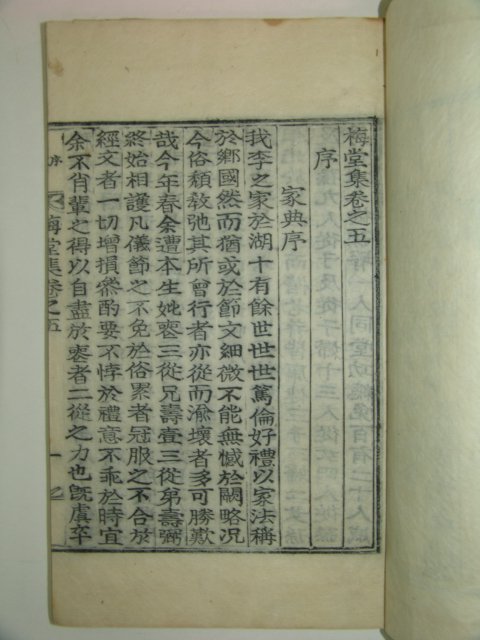 梅堂集卷之五
序
家典序
我李之家於湖十有餘世世世篤倫好禮以家法稱
於鄕國然而猶或於節文細微不能無憾於闕略況
今俗頹敎弛其所會行者亦從而渝壞者多可勝歎
哉今年春余遭本生妣喪三從兄壽壹三從弟壽弼
終始相護凡儀節之不免於俗累者冠服之不合於
經文者一切增損叅酌要不悖於禮意不乖於時宜
余不肖輩之得以自盡於喪者二從之力也旣虞卒
梅堂集卷之五 序 一